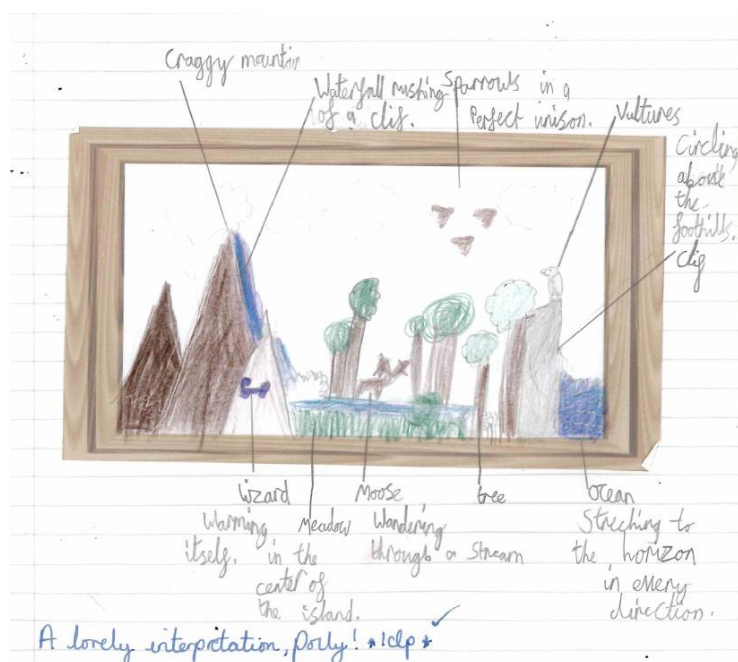 Craggy mountain
Waterfall rushing
of a clif.
Sparrows in a
Perfect unison.
Vultures
Circling
above
the
foothills.
clif
wizard
Warming
itself.
Meadow
in the
center of
the island.
Moose
Wandering
through a stream
tree
Ocean
Streching to
the horizon
in every
direction.
A lovely interpretation, Polly! *1dp*